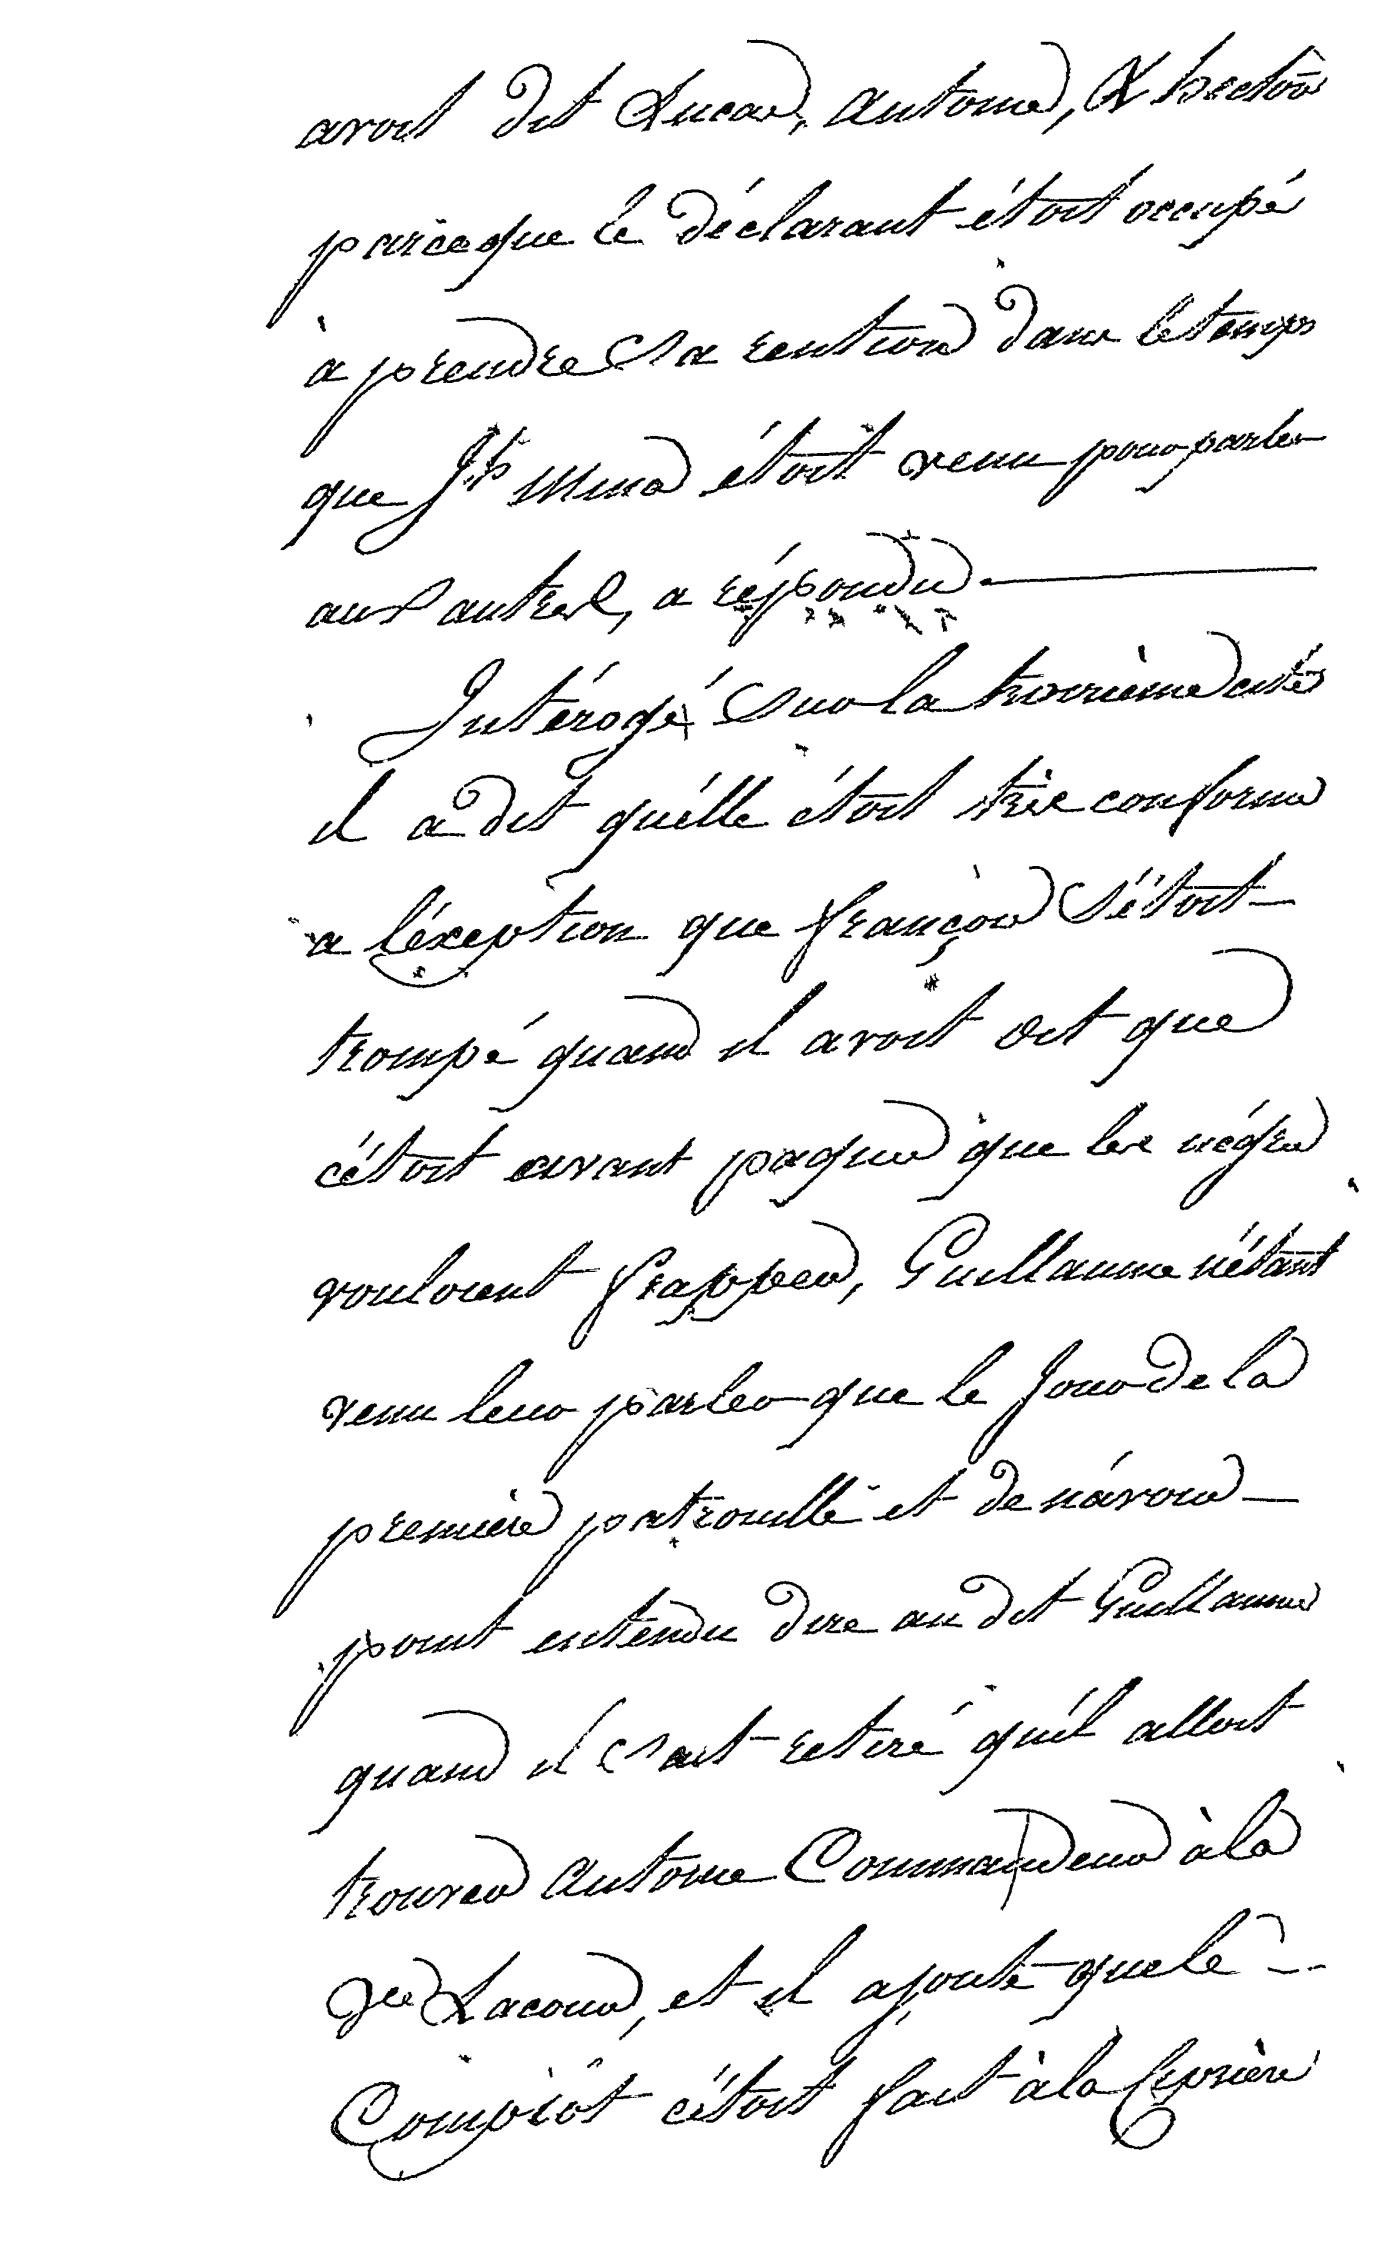 avoit dit Lucas, Antoine, & hector
parceque le déclarant étoit occupé
à prendre sa rention dans le temps
que Jph Mina étoit venu pour parler
aux autres, a répondu
Intérogé sur la troisième cité
il a dit qu'élle étoit très conforme
a l'éxeption que françois s'étoit
trompé quand il avoit dit que
c'étoit avant paques que les négres
vouloient frapper, Guillaume n'étant
venu leur parler que le Jour de la
premiere patrouille et de n'avoir
point entendu dire au dit Guillaume
quand il s'est retiré qu'il alloit
trouver Antoine Commandeur à la
Vve Lacour, et il ajoute que le
Complôt s'étoit fait à la Cipriere